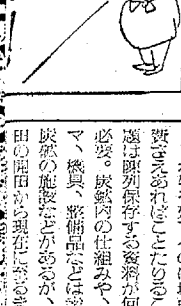 費さえあればことたりるこ
題は陳列保存する資料が何
必要。炭鉱内の仕組みや、
マ、機具、整備品などは
炭鉱の施設などがあるが、
田の開田から現在に至るま